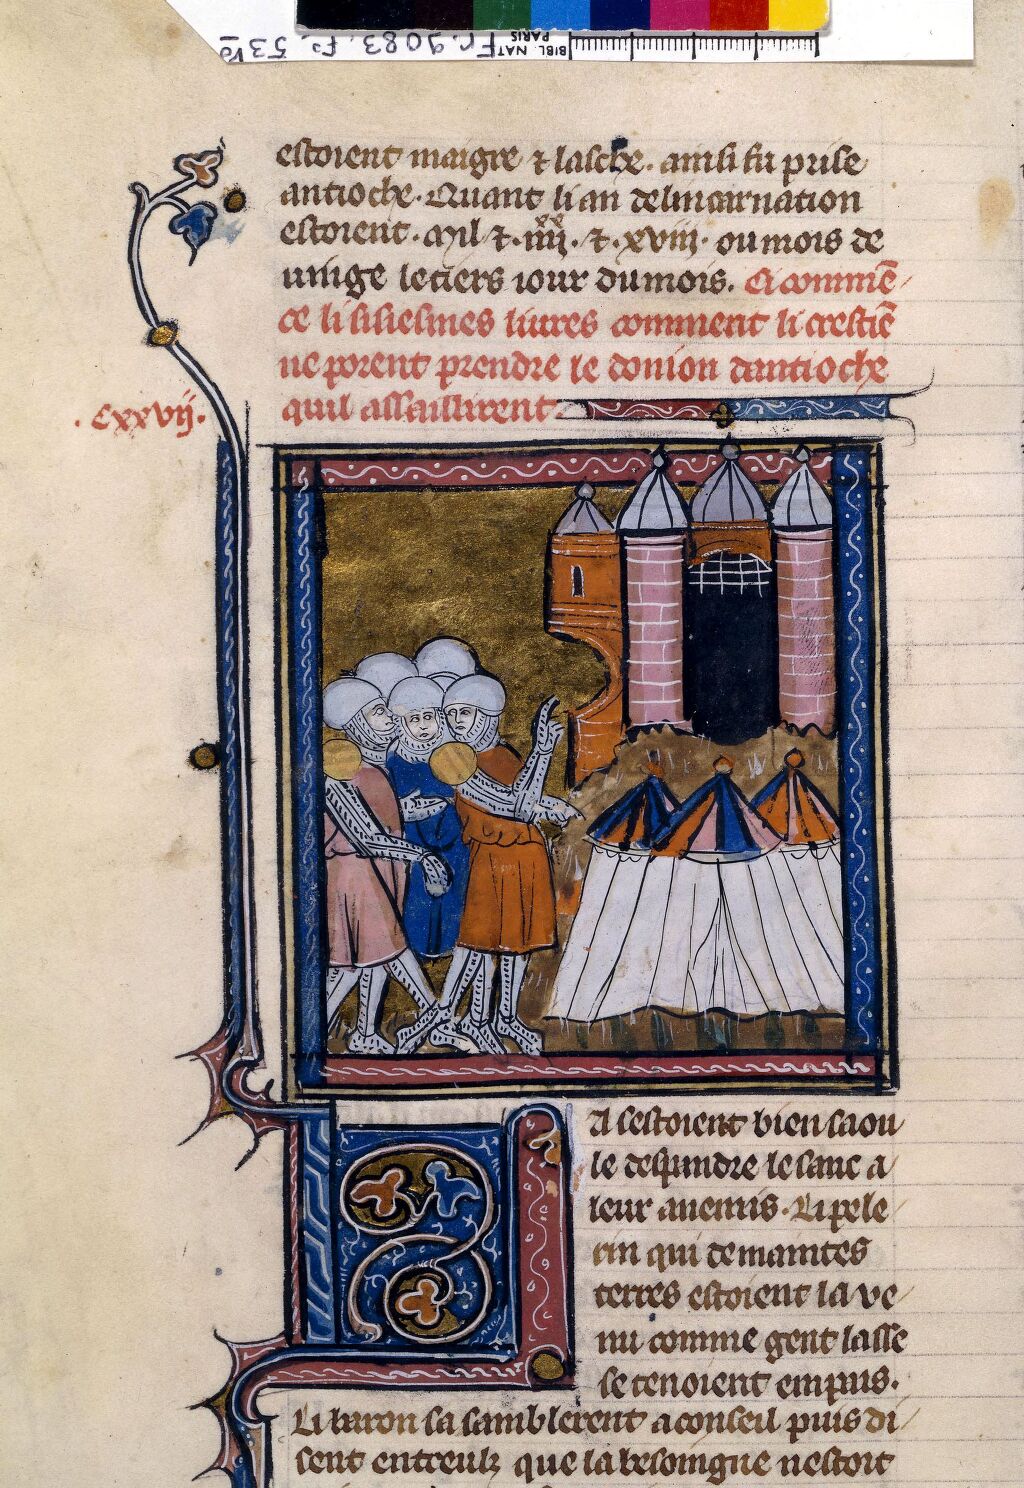 Fr. 9083. fo. 53vo
BIBL. NAT.
PARIS
estoient maigre ⁊ lasche. ainsi fu prise
antioche. Quant li an delincarnation
estoient. Mil ⁊. iiii^xx. ⁊. xviii. ou mois de
le tiers iour du mois. Ci commē
ce li sisiesmes liures comment li crestiē
ne porent prendre le donion dantioche
quil assaillirent
.Cxxvij.
Ja sestoient bien saou
le despandre le sanc a
leur anemis. Li pele
rin qui de maintes
terres estoient la ve
nu comme gent lasse
se tenoient em pais.
Li baron sa samblerent a conseil puis di
sent entreulz que la besoingne nestoit